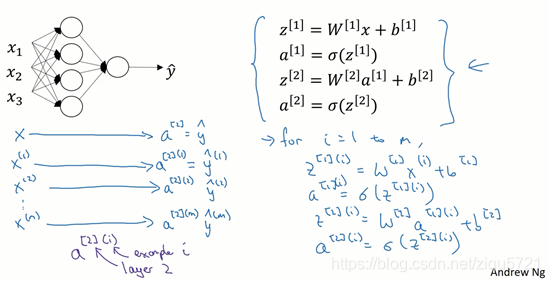 x₁
x₂
x₃
ŷ
z^[1] = W^[1]x + b^[1]
a^[1] = σ(z^[1])
z^[2] = W^[2]a^[1] + b^[2]
a^[2] = σ(z^[2])
x → a^[2] = ŷ
x^(1) → a^[2](1) = ŷ^(1)
x^(2) → a^[2](2) ŷ^(2)
⋮
x^(m) → a^[2](m) ŷ^(m)
a^[2](i)
example i
layer 2
→ for i = 1 to m,
z^[1](i) = W^[1] x^(i) + b^[1]
a^[1](i) = σ(z^[1](i))
z^[2](i) = W^[2] a^[1](i) + b^[2]
a^[2](i) = σ(z^[2](i))
https://blog.csdn.net/ziqu5721
Andrew Ng